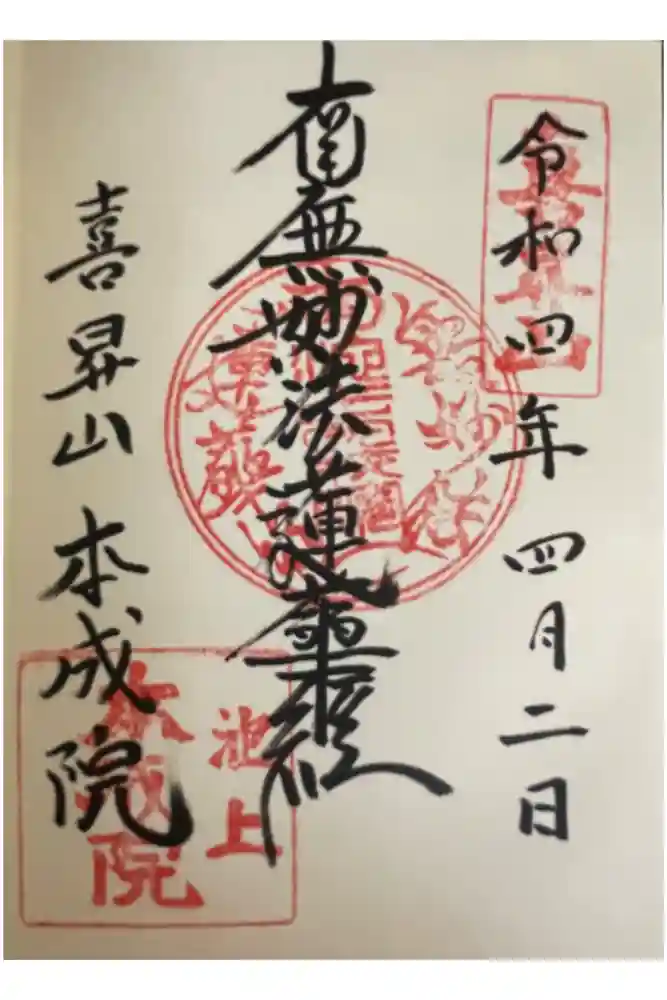 令和四年四月二日
南無妙法蓮華經
喜昇山 本成院
池上
本成院